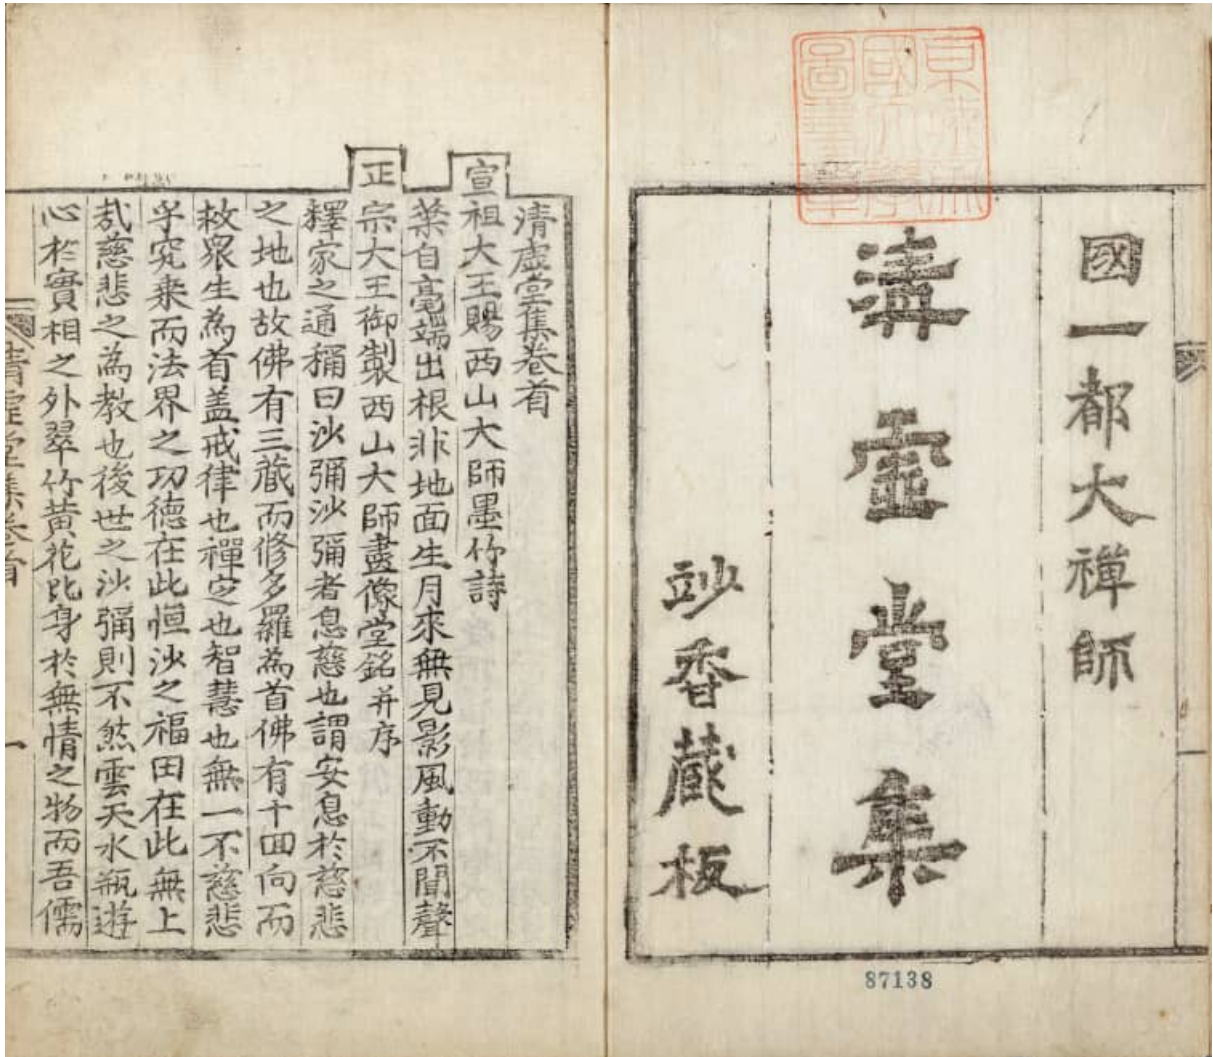 京城帝國大學圖書章
國一都大禪師
清虛堂集
竗香蔵板
87138
清虛堂集卷首
宣祖大王賜西山大師墨竹詩
葉自毫端出根非地面生月來無見影風動不聞聲
正宗大王御製西山大師畫像堂銘并序
釋家之通稱曰沙彌沙彌者息慈也謂安息於慈悲
之地也故佛有三藏而修多羅為首佛有十回向而
救衆生為首盖戒律也禪定也智慧也無一不慈悲
乎究乗而法界之功德在此恒沙之福田在此無上
哉慈悲之為教也後世之沙彌則不然雲天水瓶遊
心於實相之外翠竹黄花比身於無情之物而吾儒
清虛堂集卷首 一